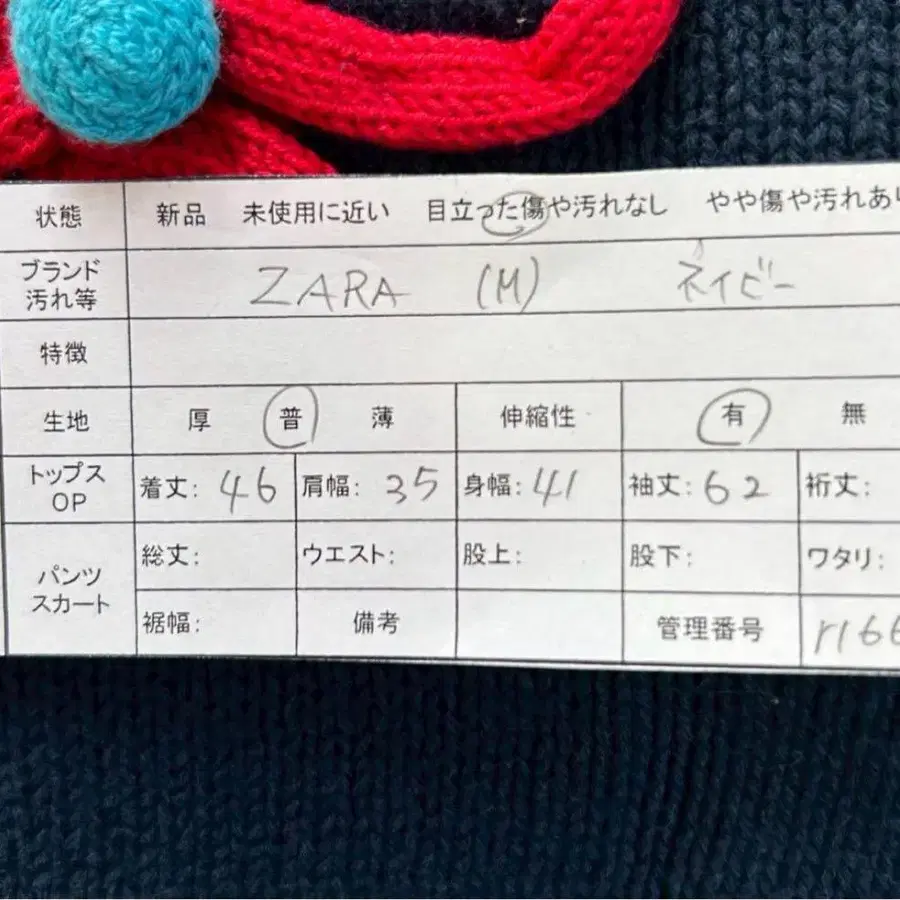 状態 新品 未使用に近い 目立った傷や汚れなし やや傷や汚れあり
ブランド
汚れ等 ZARA (M) ネイビー
特徴
生地 厚 普 薄 伸縮性 有 無
トップス
OP 着丈: 46 肩幅: 35 身幅: 41 袖丈: 62 裄丈:
パンツ
スカート 総丈: ウエスト: 股上: 股下: ワタリ:
裾幅: 備考 管理番号 r166